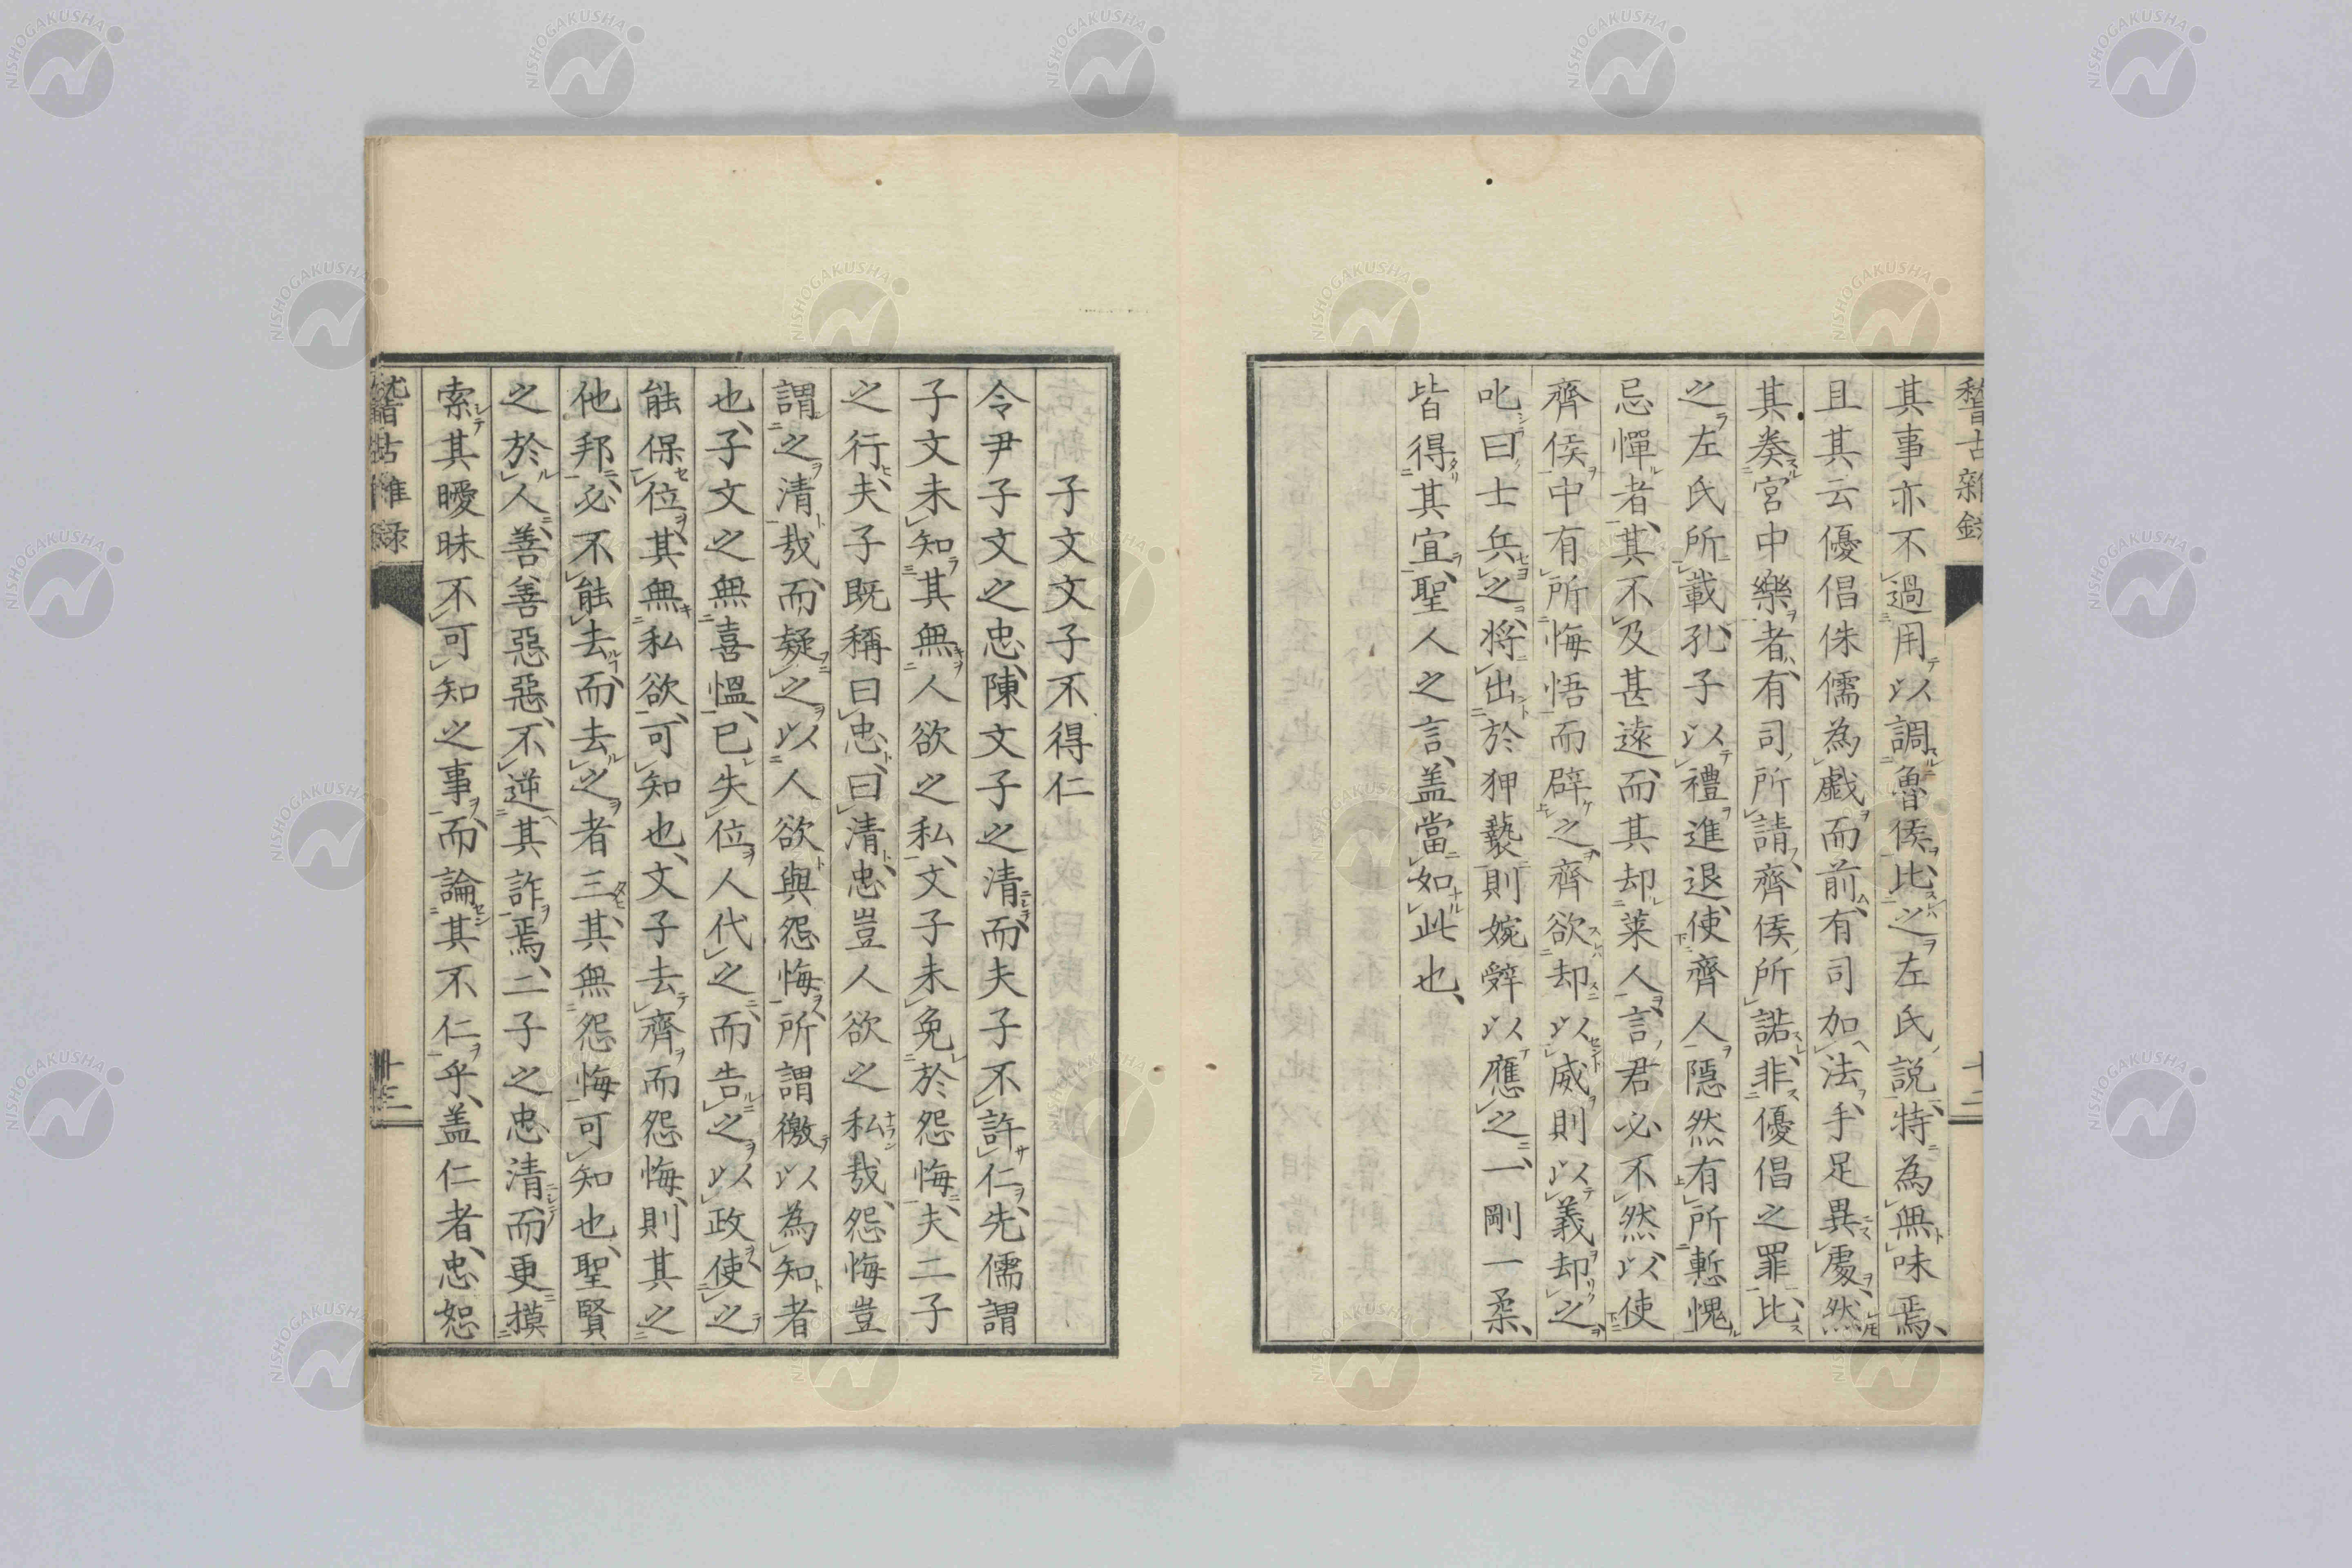 稽古雜錄
十二
其事亦不過用以調魯侯比之左氏說特為無味焉
且其云優倡侏儒為戯而前有司加法手足異處然
其奏宮中樂者有司所請齊侯所諾非優倡之罪比
之左氏所載孔子以禮進退使齊人隱然有所慙愧
忌憚者其不及甚遠而其却莱人言君必不然以使
齊侯中有所悔悟而辟之齊欲却以威則以義却之
叱曰士兵之將出於狎褻則婉辤以應之一剛一柔
皆得其宜聖人之言盖當如此也
子文文子不得仁
令尹子文之忠陳文子之清而夫子不許仁先儒謂
子文未知其無人欲之私文子未免於怨悔夫二子
之行夫子既稱曰忠曰清忠豈人欲之私哉怨悔豈
謂之清哉而疑之以人欲與怨悔所謂徼以為知者
也子文之無喜慍已失位人代之而告之以政使之
能保位其無私欲可知也文子去齊而怨悔則其之
他邦必不能去而去之者三其無怨悔可知也聖賢
之於人善善惡惡不逆其詐焉二子之忠清而更摸
索其曖昧不可知之事而論其不仁乎盖仁者忠恕
稽古雜録
十三
NISHOGAKUSHA